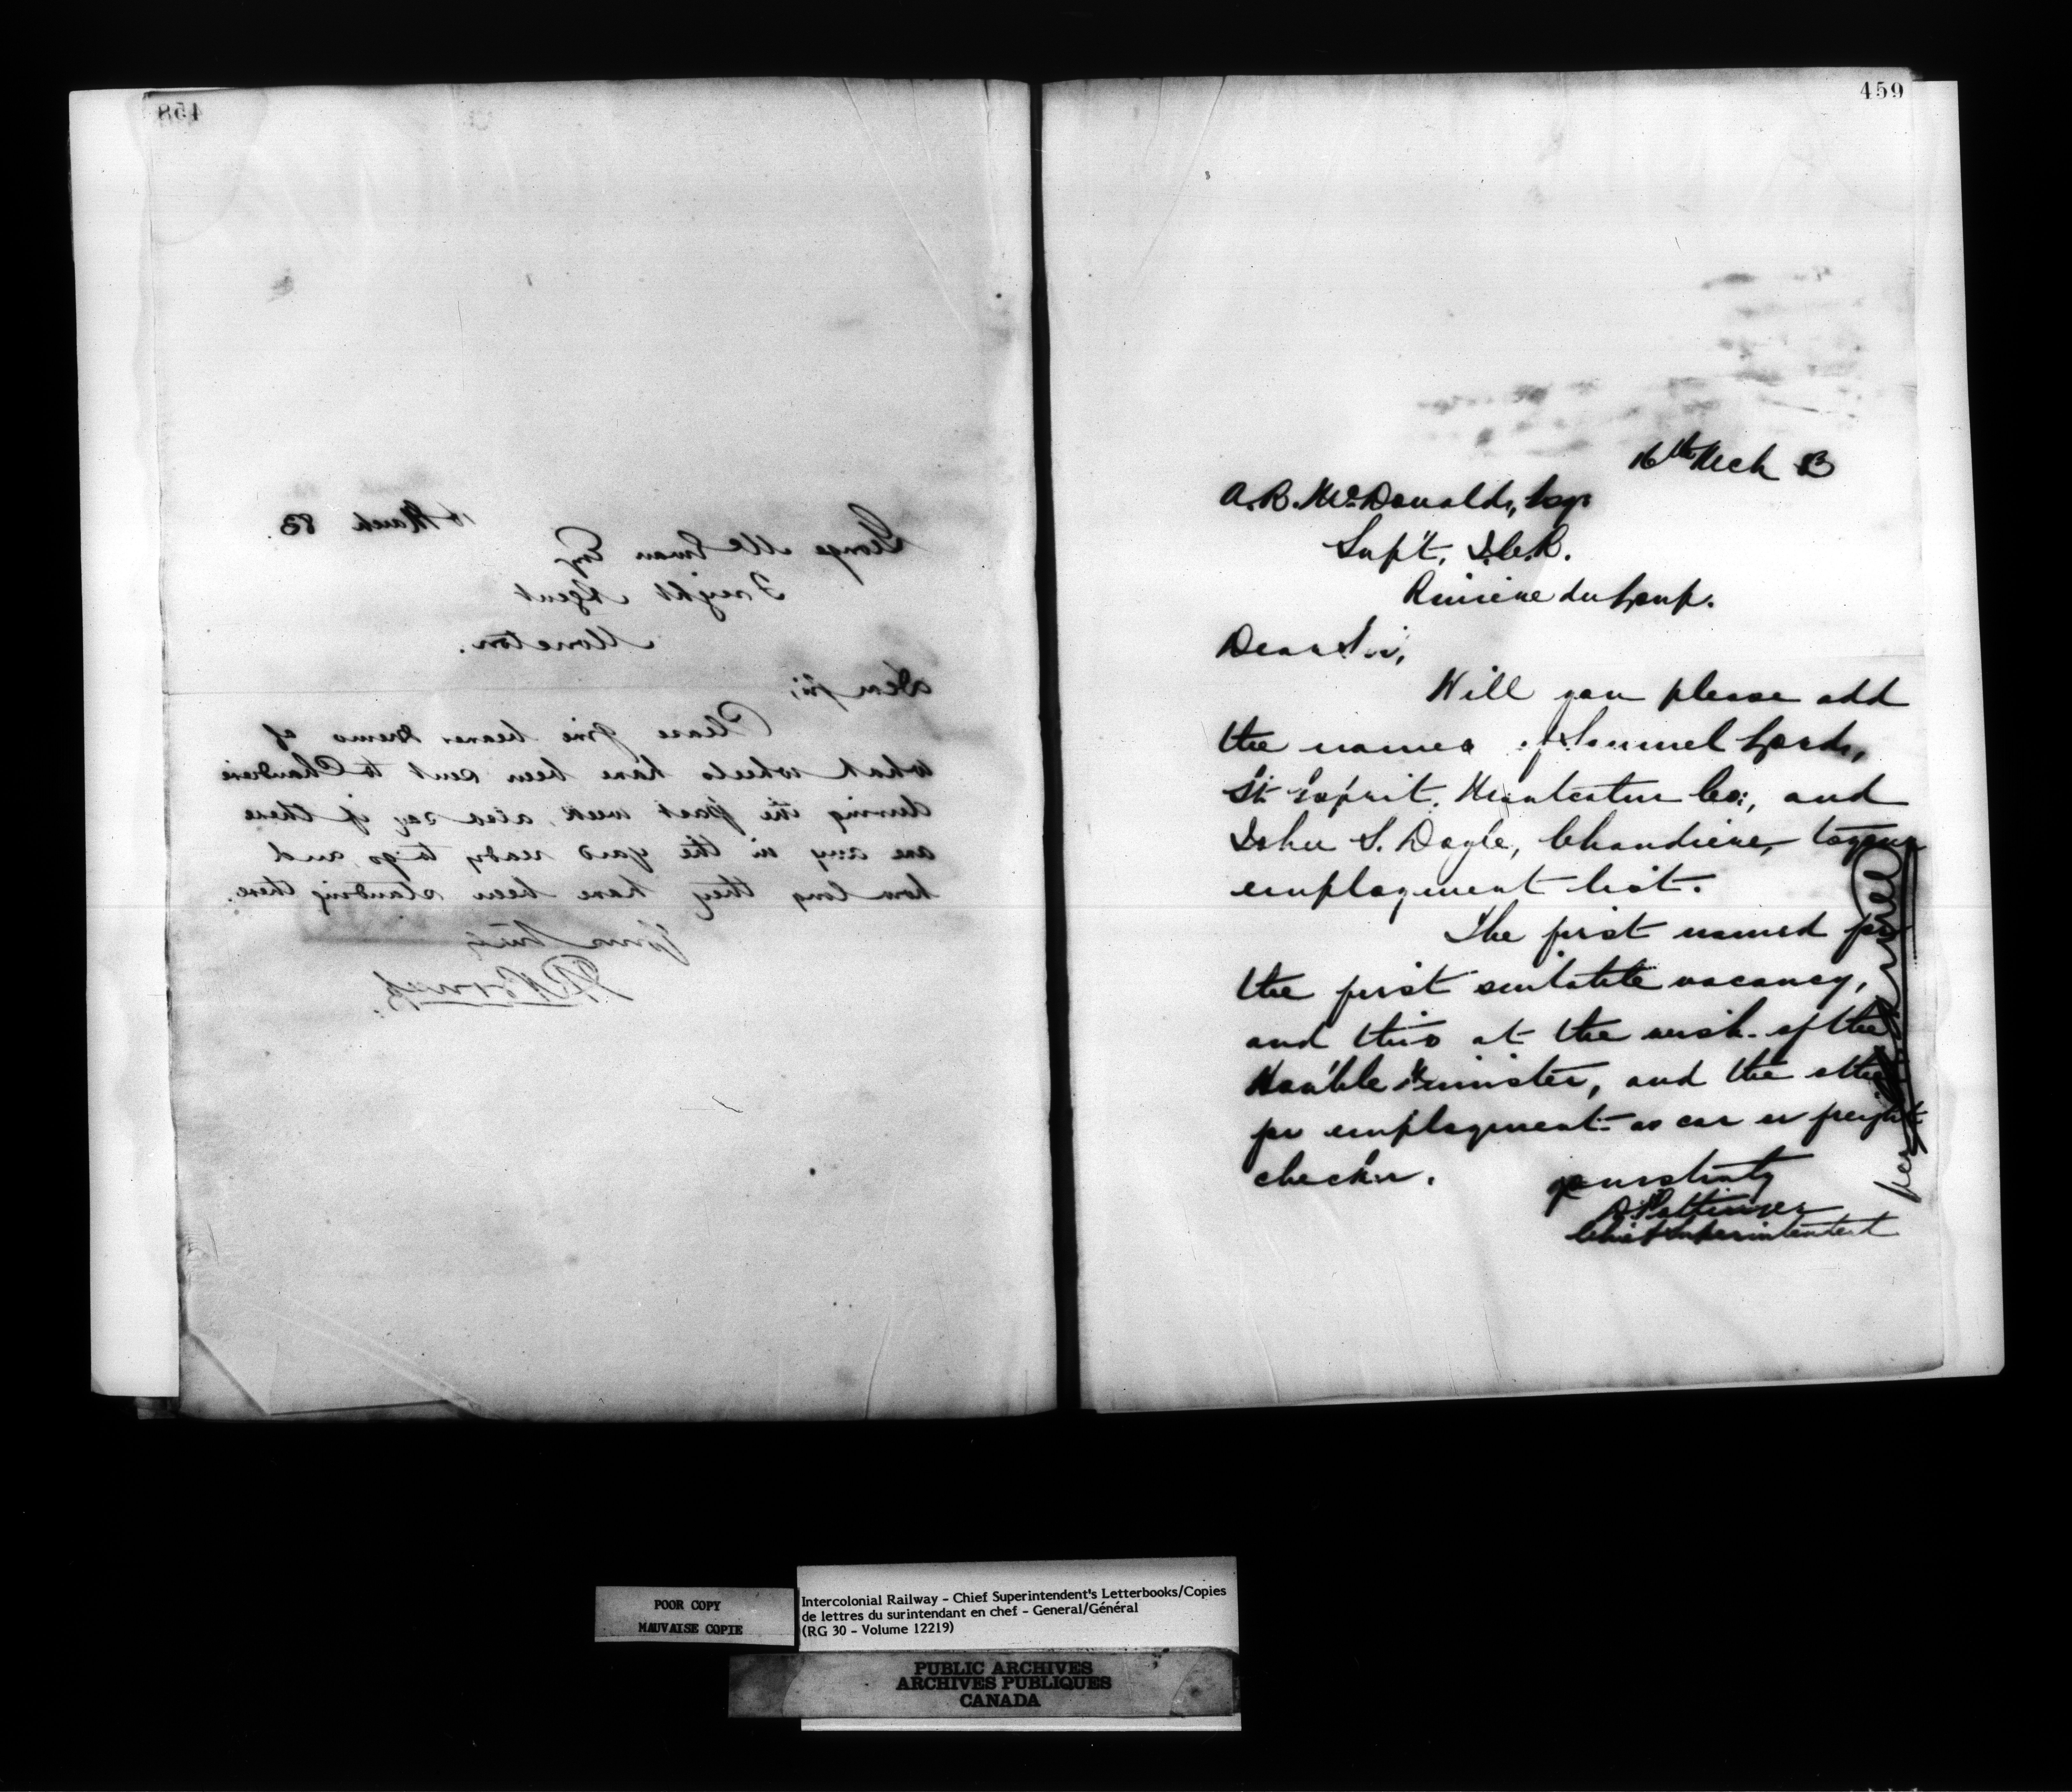 458
16 March 83.
George McEwan Esq
Freight Agent
Moncton.
Dear Sir,
Please give bearer memo of
what wheels have been sent to Chaudiere
during the past week, also say if there
are any in the yard ready to go, and
how long they have been standing there.
Yours truly
459
16th Mch 83
A. R. McDonald, Esqr
Supt. I.C.R.
Riviere du Loup.
Dear Sir,
Will you please add
the names of Samuel Lords,
St. Esprit, Montcalm Co:, and
John S. Doyle, Chaudiere, to your
employment list.
The first named for
the first suitable vacancy,
and this at the wish of the
Hon'ble Minister, and the other
for employment as car or freight
checker.
Yours truly
D. Pottinger
Chief Superintendent
per
POOR COPY
MAUVAISE COPIE
Intercolonial Railway - Chief Superintendent's Letterbooks/Copies
de lettres du surintendant en chef - General/Général
(RG 30 - Volume 12219)
PUBLIC ARCHIVES
ARCHIVES PUBLIQUES
CANADA